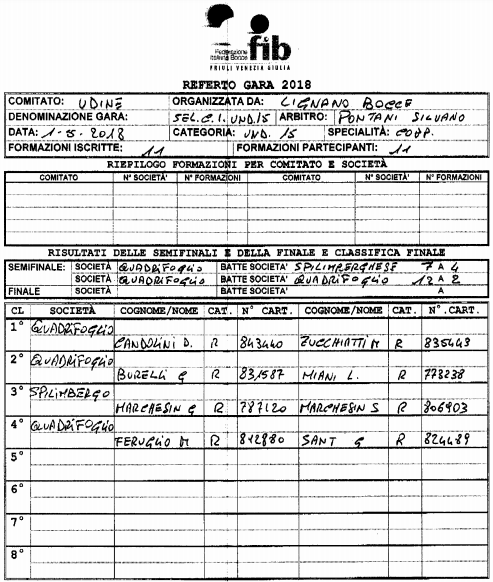 Federazione
Italiana Bocce
fib
FRIULI VENEZIA GIULIA
REFERTO GARA 2018
COMITATO: UDINE ORGANIZZATA DA: LIGNANO BOCCE
DENOMINAZIONE GARA: SEL.C.I. UND.15 ARBITRO: PONTANI SILVANO
DATA: 1-5-2018 CATEGORIA: UND. 15 SPECIALITÀ: COPP.
FORMAZIONI ISCRITTE: 11 FORMAZIONI PARTECIPANTI: 11
RIEPILOGO FORMAZIONI PER COMITATO E SOCIETÀ
COMITATO N° SOCIETA' N° FORMAZIONI COMITATO N° SOCIETA' N° FORMAZIONI
RISULTATI DELLE SEMIFINALI E DELLA FINALE E CLASSIFICA FINALE
SEMIFINALE: SOCIETÀ QUADRIFOGLIO BATTE SOCIETA' SPILIMBERGHESE 7 A 4
SOCIETÀ QUADRIFOGLIO BATTE SOCIETA' QUADRIFOGLIO 12 A 2
FINALE SOCIETÀ BATTE SOCIETA' A
CL SOCIETÀ COGNOME/NOME CAT. N° CART. COGNOME/NOME CAT. N°.CART.
1° QUADRIFOGLIO
CANDOLINI D. R 843440 ZUCCHIATTI M R 835443
2° QUADRIFOGLIO
BURELLI G R 831587 MIANI L. R 773238
3° SPILIMBERGO
MARCHESIN G R 787120 MARCHESIN S R 806903
4° QUADRIFOGLIO
FERUGLIO M R 812980 SANT G R 824489
5°
6°
7°
8°